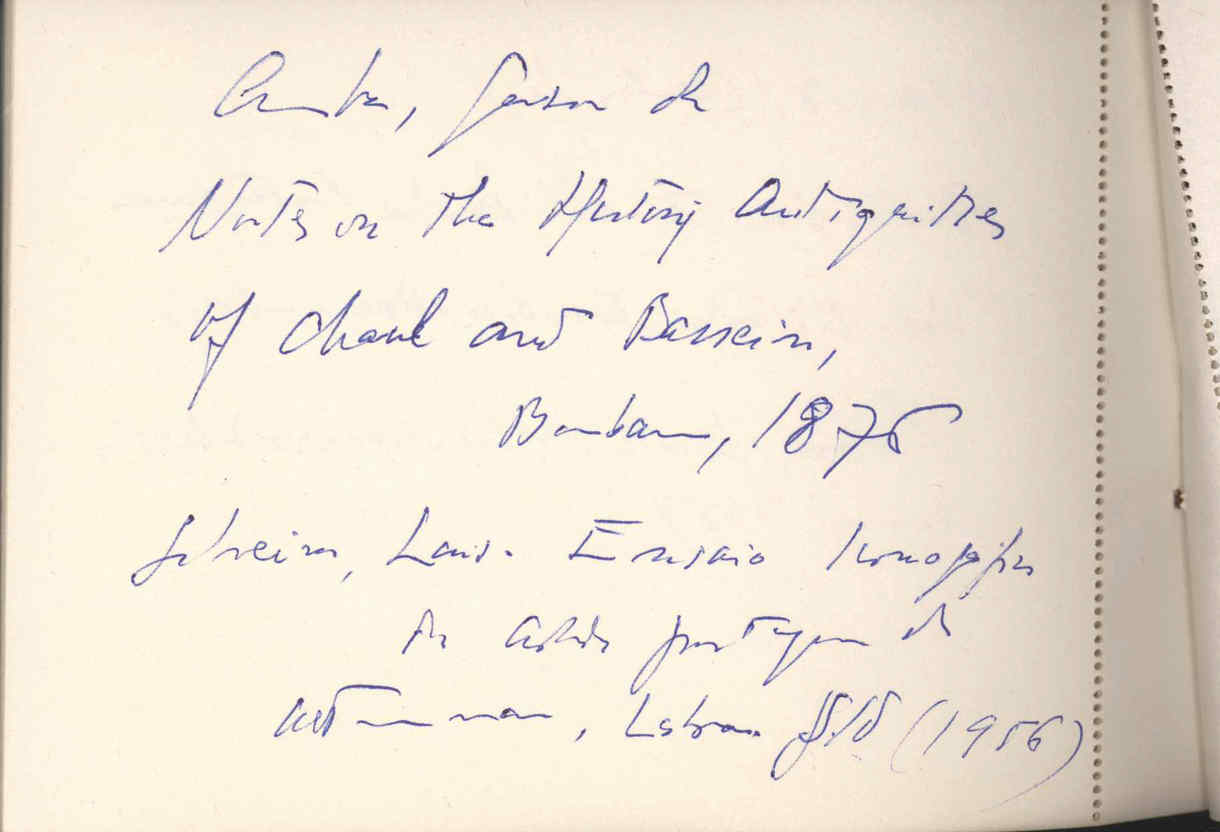 Cunha, Gerson da
Notes on the History Antiquities
of Chaul and Bassein,
Bombaim, 1876
Silveira, Luis. Ensaio Iconografia
das Cidades portuguesas do
ultramar, Lisboa s/d (1956)